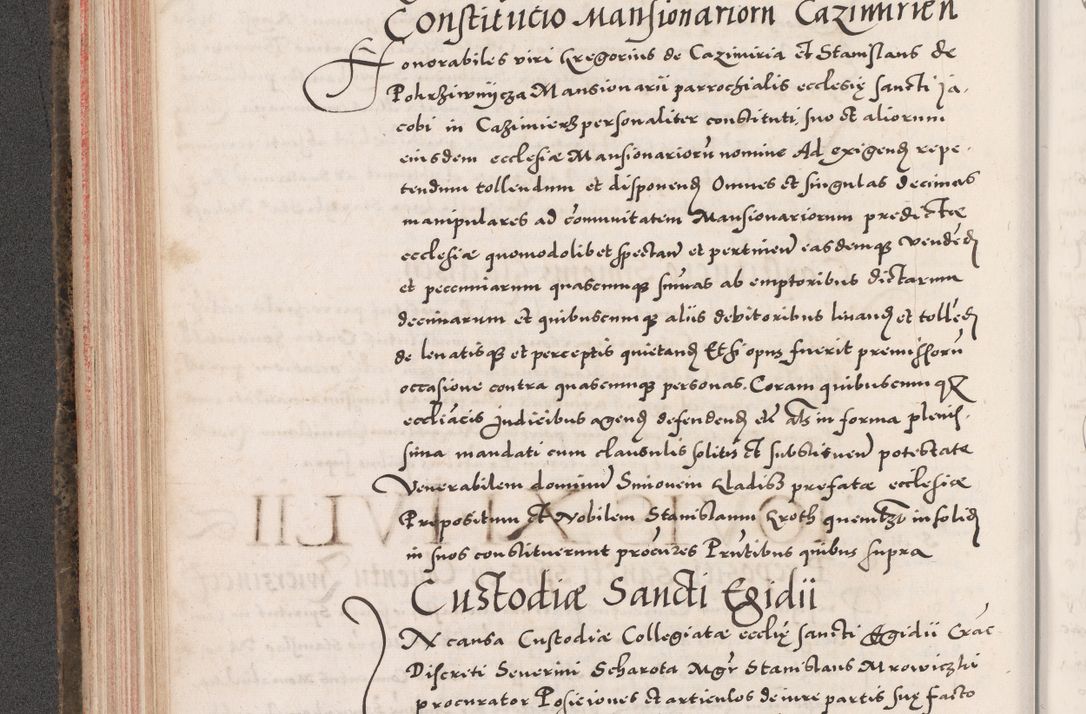 Constitucio Mansionariorn Cazimirien
Honorabiles viri Gregorius de Cazimiria et Stanislaus de
Pobrziwnycza Mansionarii parrochialis ecclesię sancti ia-
cobi in Cazimierz personaliter constituti, suo et aliorum
eiusdem ecclesiæ Mansionariorū nomine Ad exigend repe-
tendum tollendum et disponend Omnes et singulas decimas
manipulares ad cōmunitatem Mansionariorum predictæ
ecclesiæ quomodolibet spectan et pertinen easdemq vendēd
et pecuniarum quascumq summas ab emptoribus dictarum
decimarum et quibuscumq aliis debitoribus levand et tollēd
de levatisq et perceptis quietand Et si opus fuerit premissorū
occasione contra quascumq personas. Coram quibuscum q
ecclīacis Judicibus agend defendend etc als in forma plenis-
sima mandati cum clausulis solitis et substituen potestate
Venerabilem dominum Simonem Kladisz prefatæ ecclesiæ
Prepositum et Nobilem Stanislaum Kroth quemlzt in solid
in suos constituerunt procūres Prntibus quibus supra
Custodiæ Sancti Egidii
IN causa Custodiæ Collegiatæ ecclię sancti Egidii Crac
Discreti Severini Scharota Mgr Stanislaus Mrowiczki
procurator Posiciones et articulos de iure partis suę facto